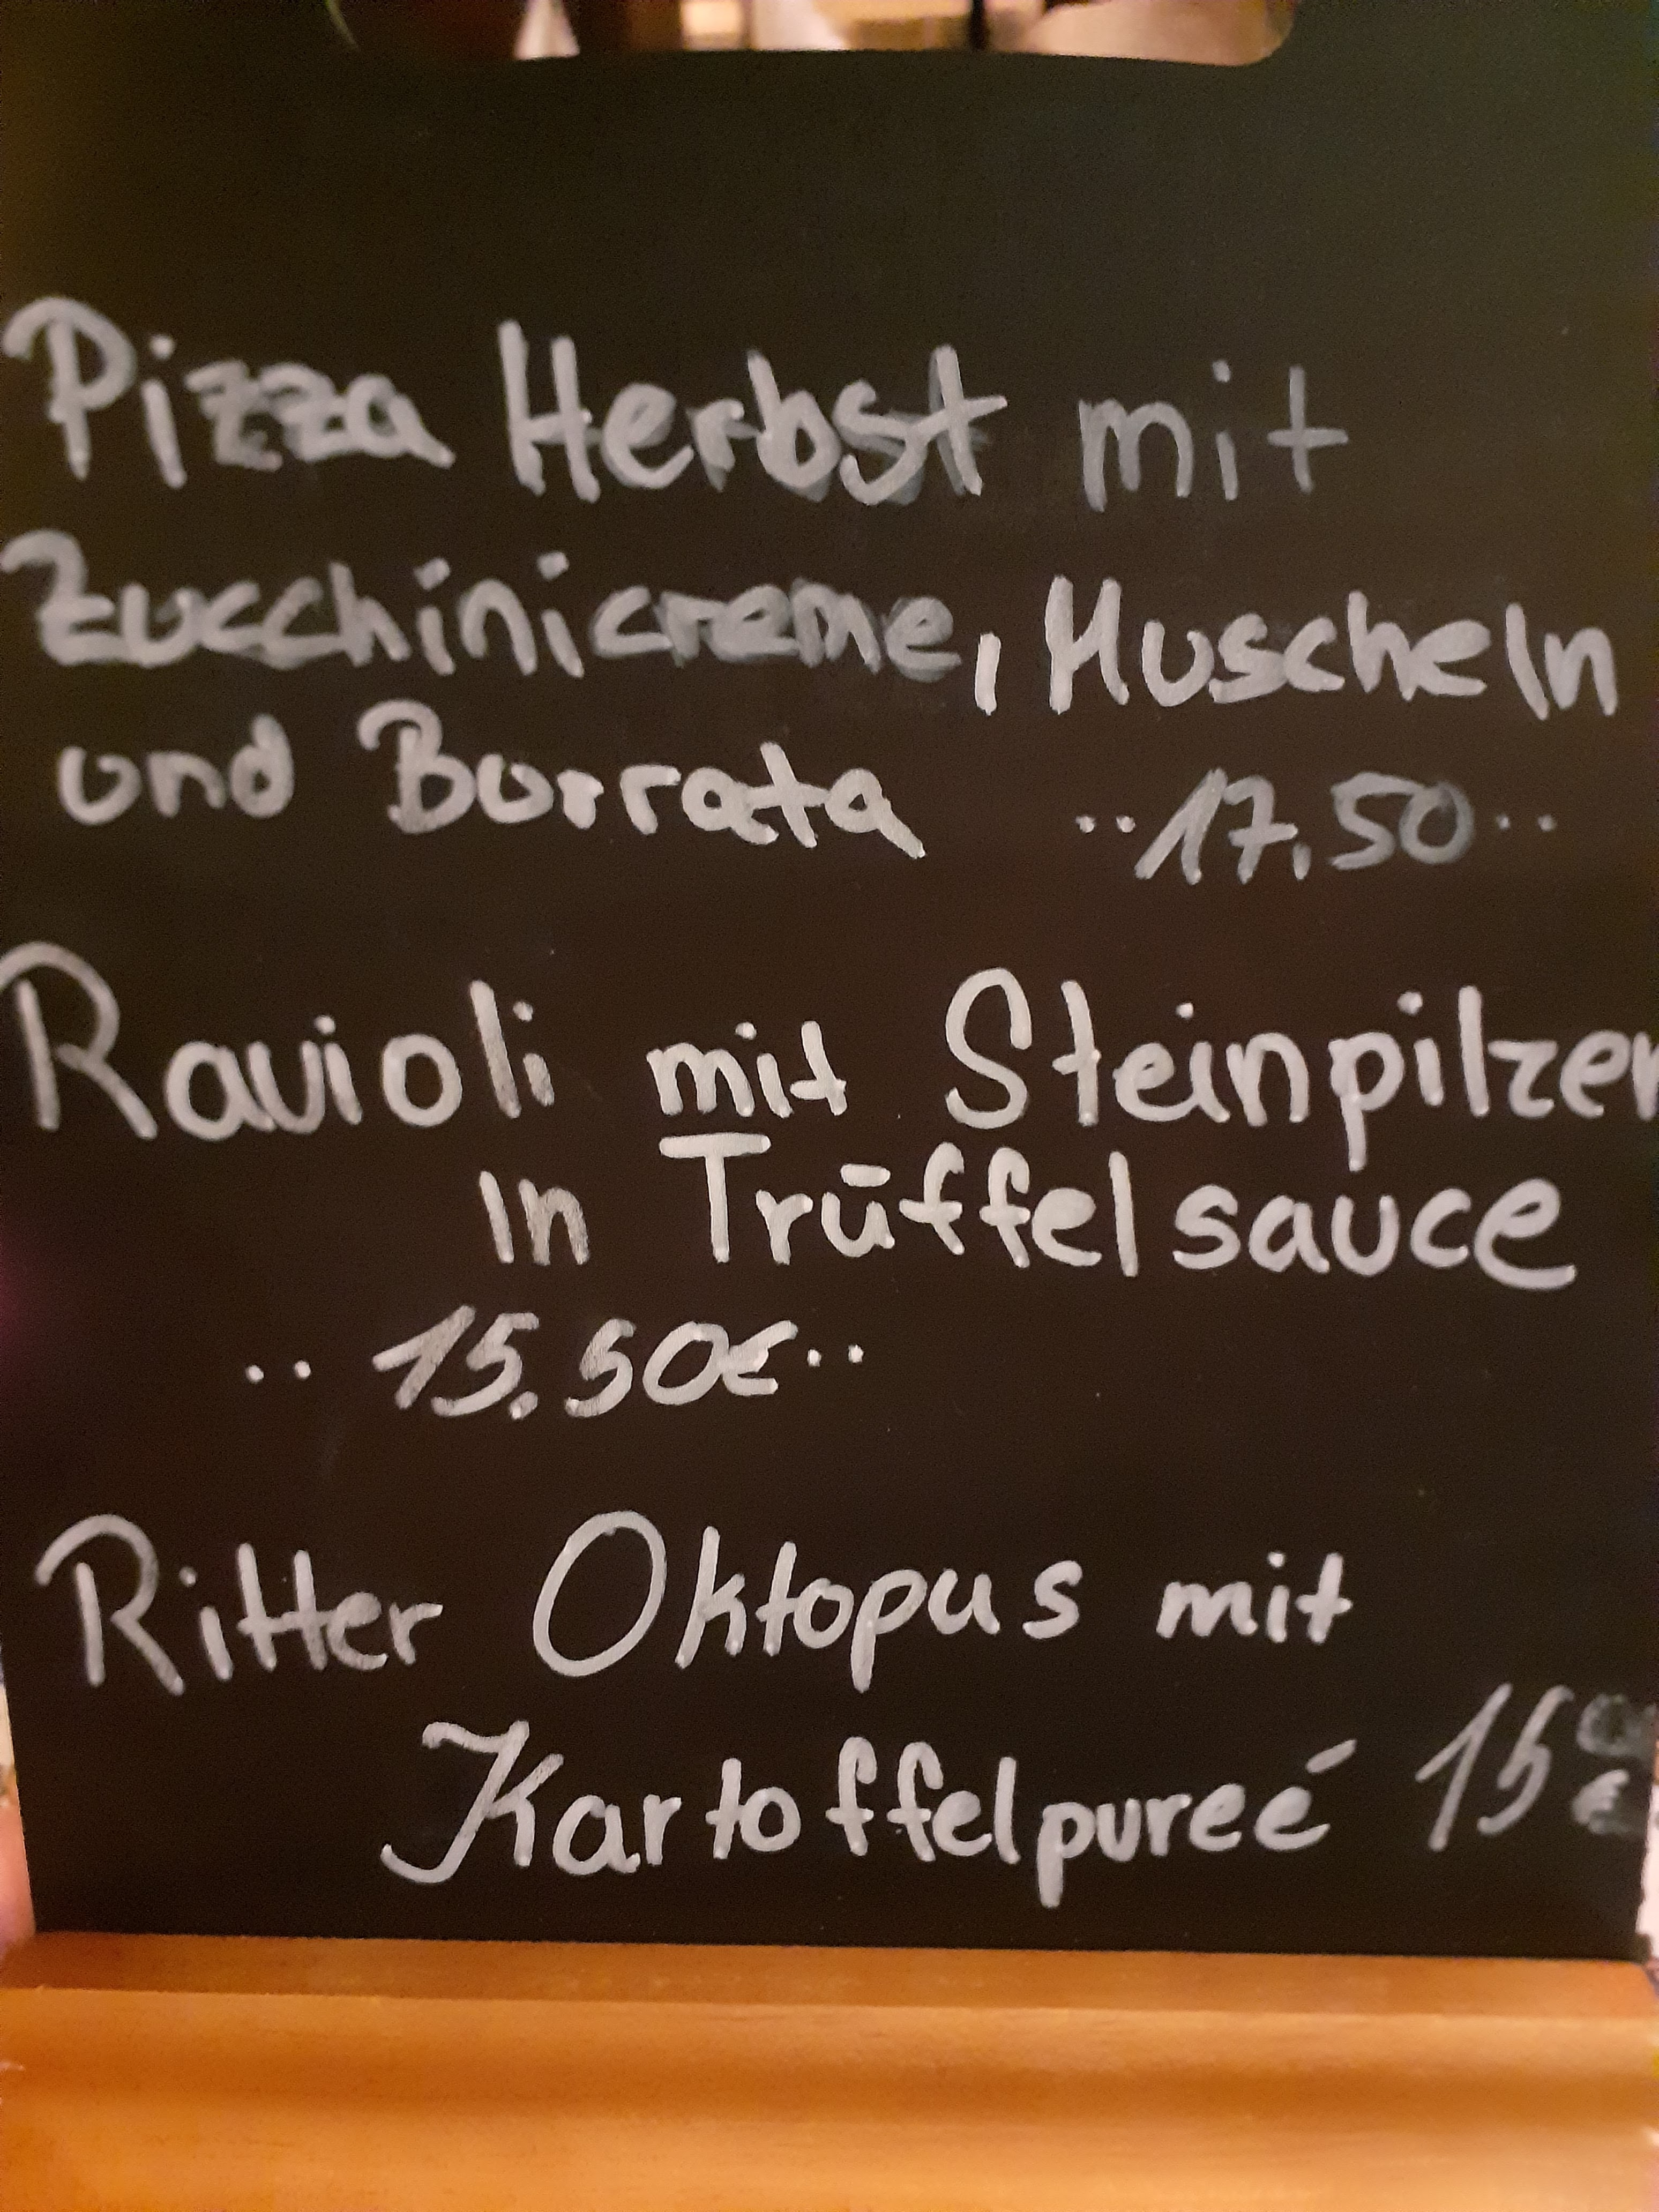 Pizza Herbst mit
Zucchinicreme, Muscheln
und Burrata ..17,50..
Ravioli mit Steinpilzen
in Trüffelsauce
.. 15.50€..
Ritter Oktopus mit
Kartoffelpureé 15€